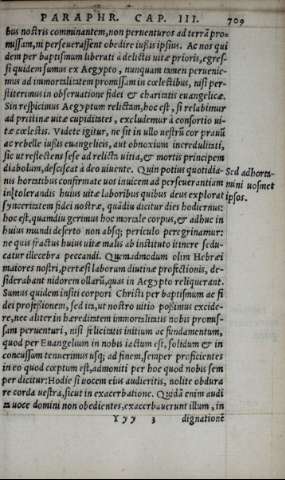 PARAPHR. CAP. III. 709
bus nostris communantem, non peruenturos ad terrã pro⸗
missam, ni perseuerassent obedire iussis ipsius. Ac nos qui
dem per baptismum liberati à delictis uitæ prioris, egres⸗
si quidem sumus ex Aegypto, nunquam tamen perueni⸗
mus ad immortalitatis promissam in cœlestibus, nisi per⸗
stiterimus in obseruatione fidei & charitatis euangelicæ.
Sin respicimus Aegyptum relictam, hoc est, si relabimur
ad pristinæ uitæ cupiditates, excludemur à consortio ui⸗
tæ cœlestis. Videte igitur, ne sit in ullo uestrũ cor prauũ
ac rebelle iussis euangelicis, aut obnoxium incredulitati,
sic ut reflectens sese ad relicta uitia, & mortis principem
diabolum, desciscat à deo uiuente. Quin potius quotidia⸗
nis hortatibus confirmate uos inuicem ad perseuerantiam
in tolerandis huius uitæ laboribus quibus deus explorat
synceritatem fidei nostræ, quãdiu dicitur dies hodiernus:
hoc est, quamdiu gerimus hoc mortale corpus, & adhuc in
huius mundi deserto non absq; periculo peregrinamur:
ne quis fractus huius uitæ malis ab instituto itinere sedu⸗
catur illecebra peccandi. Quemadmodum olim Hebræi
maiores nostri, pertæsi laborum diutinæ profectionis, de⸗
siderabant nidorem ollarũ, quas in Aegypto reliquerant.
Sumus quidem insiti corpori Christi per baptismum ac fi
dei professionem, sed ita, ut nostro uitio possimus excide⸗
re, nec aliter in hæreditatem immortalitatis nobis promis⸗
sam peruenturi, nisi felicitatis initium ac fundamentum,
quod per Euangelium in nobis iactum est, solidum & in
concussum tenuerimus usq; ad finem, semper proficientes
in eo quod cœptum est, admoniti per hoc quod nobis sem
per dicitur: Hodie si uocem eius audieritis, nolite obdura
re corda uestra, sicut in exacerbatione. Quidã enim audi
ta uoce domini non obedientes, exacerbauerunt illum, in
Yyy 3 dignationẽ
Sed adhorta⸗
mini uosmet
ipsos.